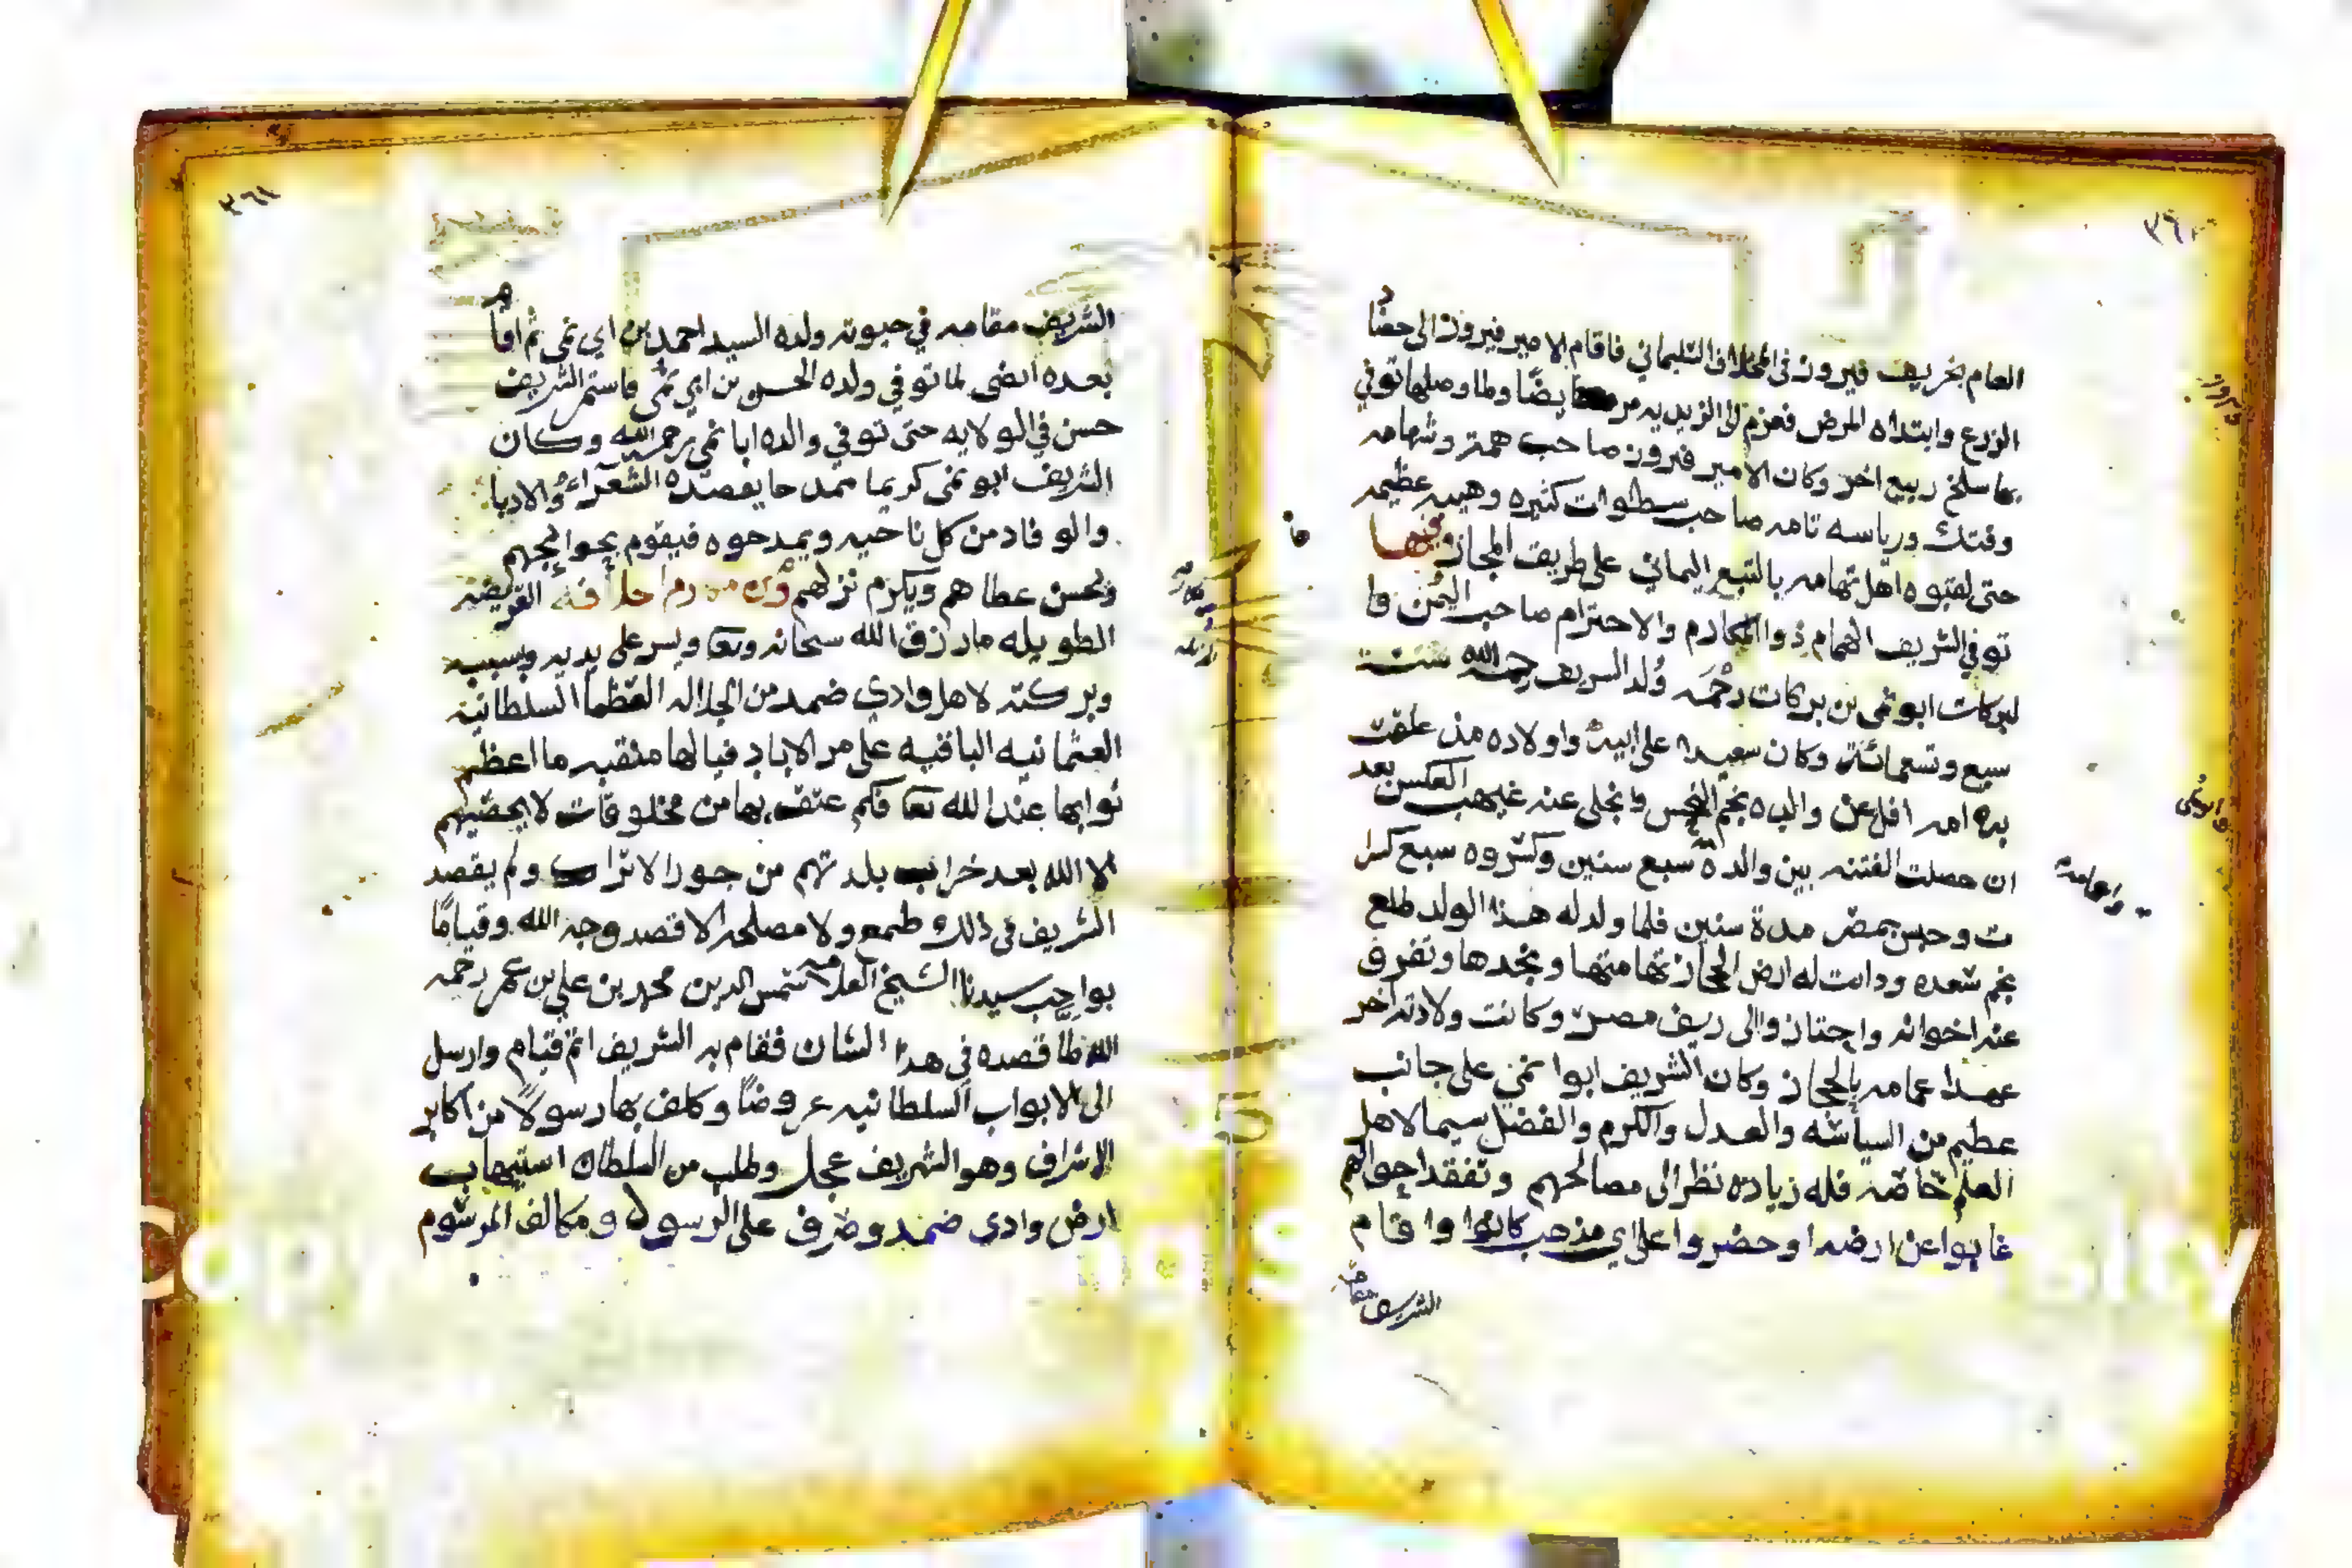 ٣٦٠
العام بخريف فيروز في المخلاف السليماني فاقام الامير فيروز الى حضا د
الزرع وابتداه المرض فعزم الى الزيديه مريضا ولما وصلها توفي
بها سلخ ربيع اخر وكان الامير فيروز صاحب همة وشهامه
وفتك ورياسه تامه صاحب سطوات كثيره وهيبه عظيمه
حتى لقبوه اهل تهامه بالتبع اليماني على طريف المجاز وفيها
توفي الشريف الهمام ذوا المكارم والاحترام صاحب اليمن وا
لبركات ابو نمي بن بركات رحمه ولد الشريف رحمه الله سنة
سبع وتسعمائة وكان سعيدا على ابيه واولاده منذ علقت
به امه افل عن والده نجم النحس وانجلى عنه غيهب العكس بعد
ان حصلت الفتنه بين والده سبع سنين وكسروه سبع كسرا
ت وحبس بمصر مدة سنين فلما ولد له هذا الولد طلع
نجم سعده ودانت له ارض الحجاز تهامتها ونجدها وتفرق
عنه اخوانه واجتازوا الى ريف مصر وكانت ولادته اخر
عهدا عامه بالحجاز وكان الشريف ابوا نمي على جانب
عظيم من السياسه والعدل والكرم والفضل سيما لاهل
العلم خاصة فله زيادة نظر الى مصالحهم وتفقد احوالهم
غابوا عن ارضه او حضروا على اي مذهب كانوا واقام
الشريف مقامه
٣٦١
الشريف مقامه في حيوته ولده السيد احمد بن ابي نمي ثم اقام
بعده ايضى لما توفي ولده الحسن بن ابي نمي فاستمر الشريف
حسن في الولايه حتى توفي والده ابا نمي رحمه الله وكان
الشريف ابو نمي كريما ممدحا يقصده الشعراء والادبا
والوفاد من كل ناحيه ويمدحوه فيقوم بحوايجهم
ويحسن عطاهم ويكرم نزلهم القريضة
الطويله ما رزق الله سبحانه وتعا ويسر على يديه وبسببه
وبركته لاهل وادي ضمد من الجلاله العظما السلطانية
العثمانيه الباقيه على مر الاباد فيالها منقبه ما اعظم
ثوابها عند الله تعا فكم عتق بها من مخلوقات لا يحصيهم
الا الله بعد خراب بلدتهم من جور الاتراك ولم يقصد
الشريف في ذلك طمع ولا مصلحه الا قصد وجه الله وقياما
بواجب سيدنا الشيخ العلامه شمس الدين محمد بن علي بن عمر رحمه
الله لما قصده في هذا الشان فقام به الشريف اتم قيام وارسل
الى الابواب السلطانيه عروضا وكلف بها رسولا من اكابر
الاشراف وهو الشريف عجل وطلب من السلطان استيهاب
ارض وادي ضمد وصرف على الرسول ومكالف المرسوم